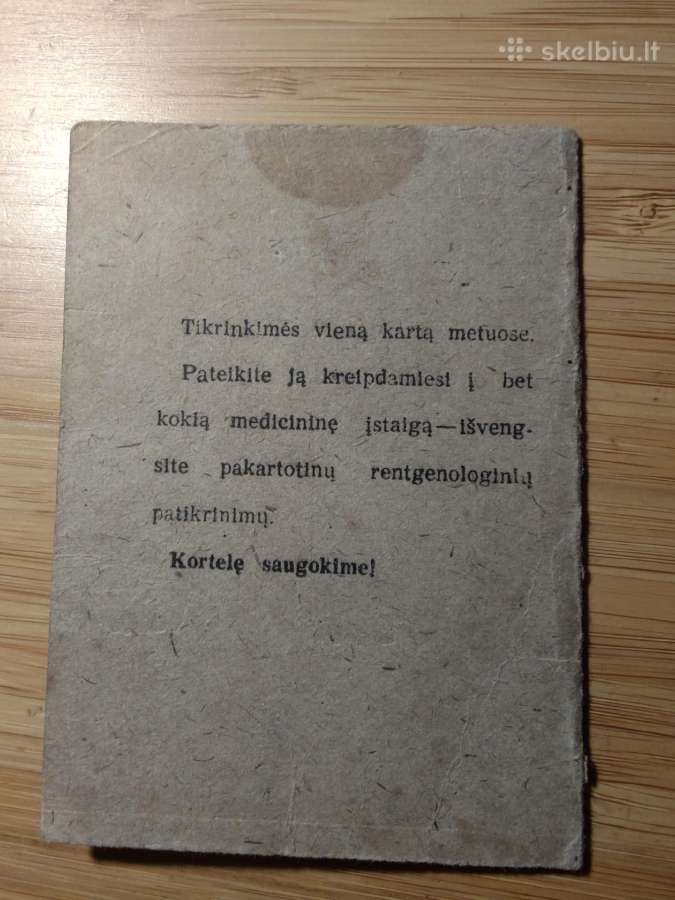 skelbiu.lt
Tikrinkimės vieną kartą metuose.
Pateikite ją kreipdamiesi į bet
kokią medicininę įstaigą—išveng-
site pakartotinų rentgenologinių
patikrinimų.
Kortelę saugokime!